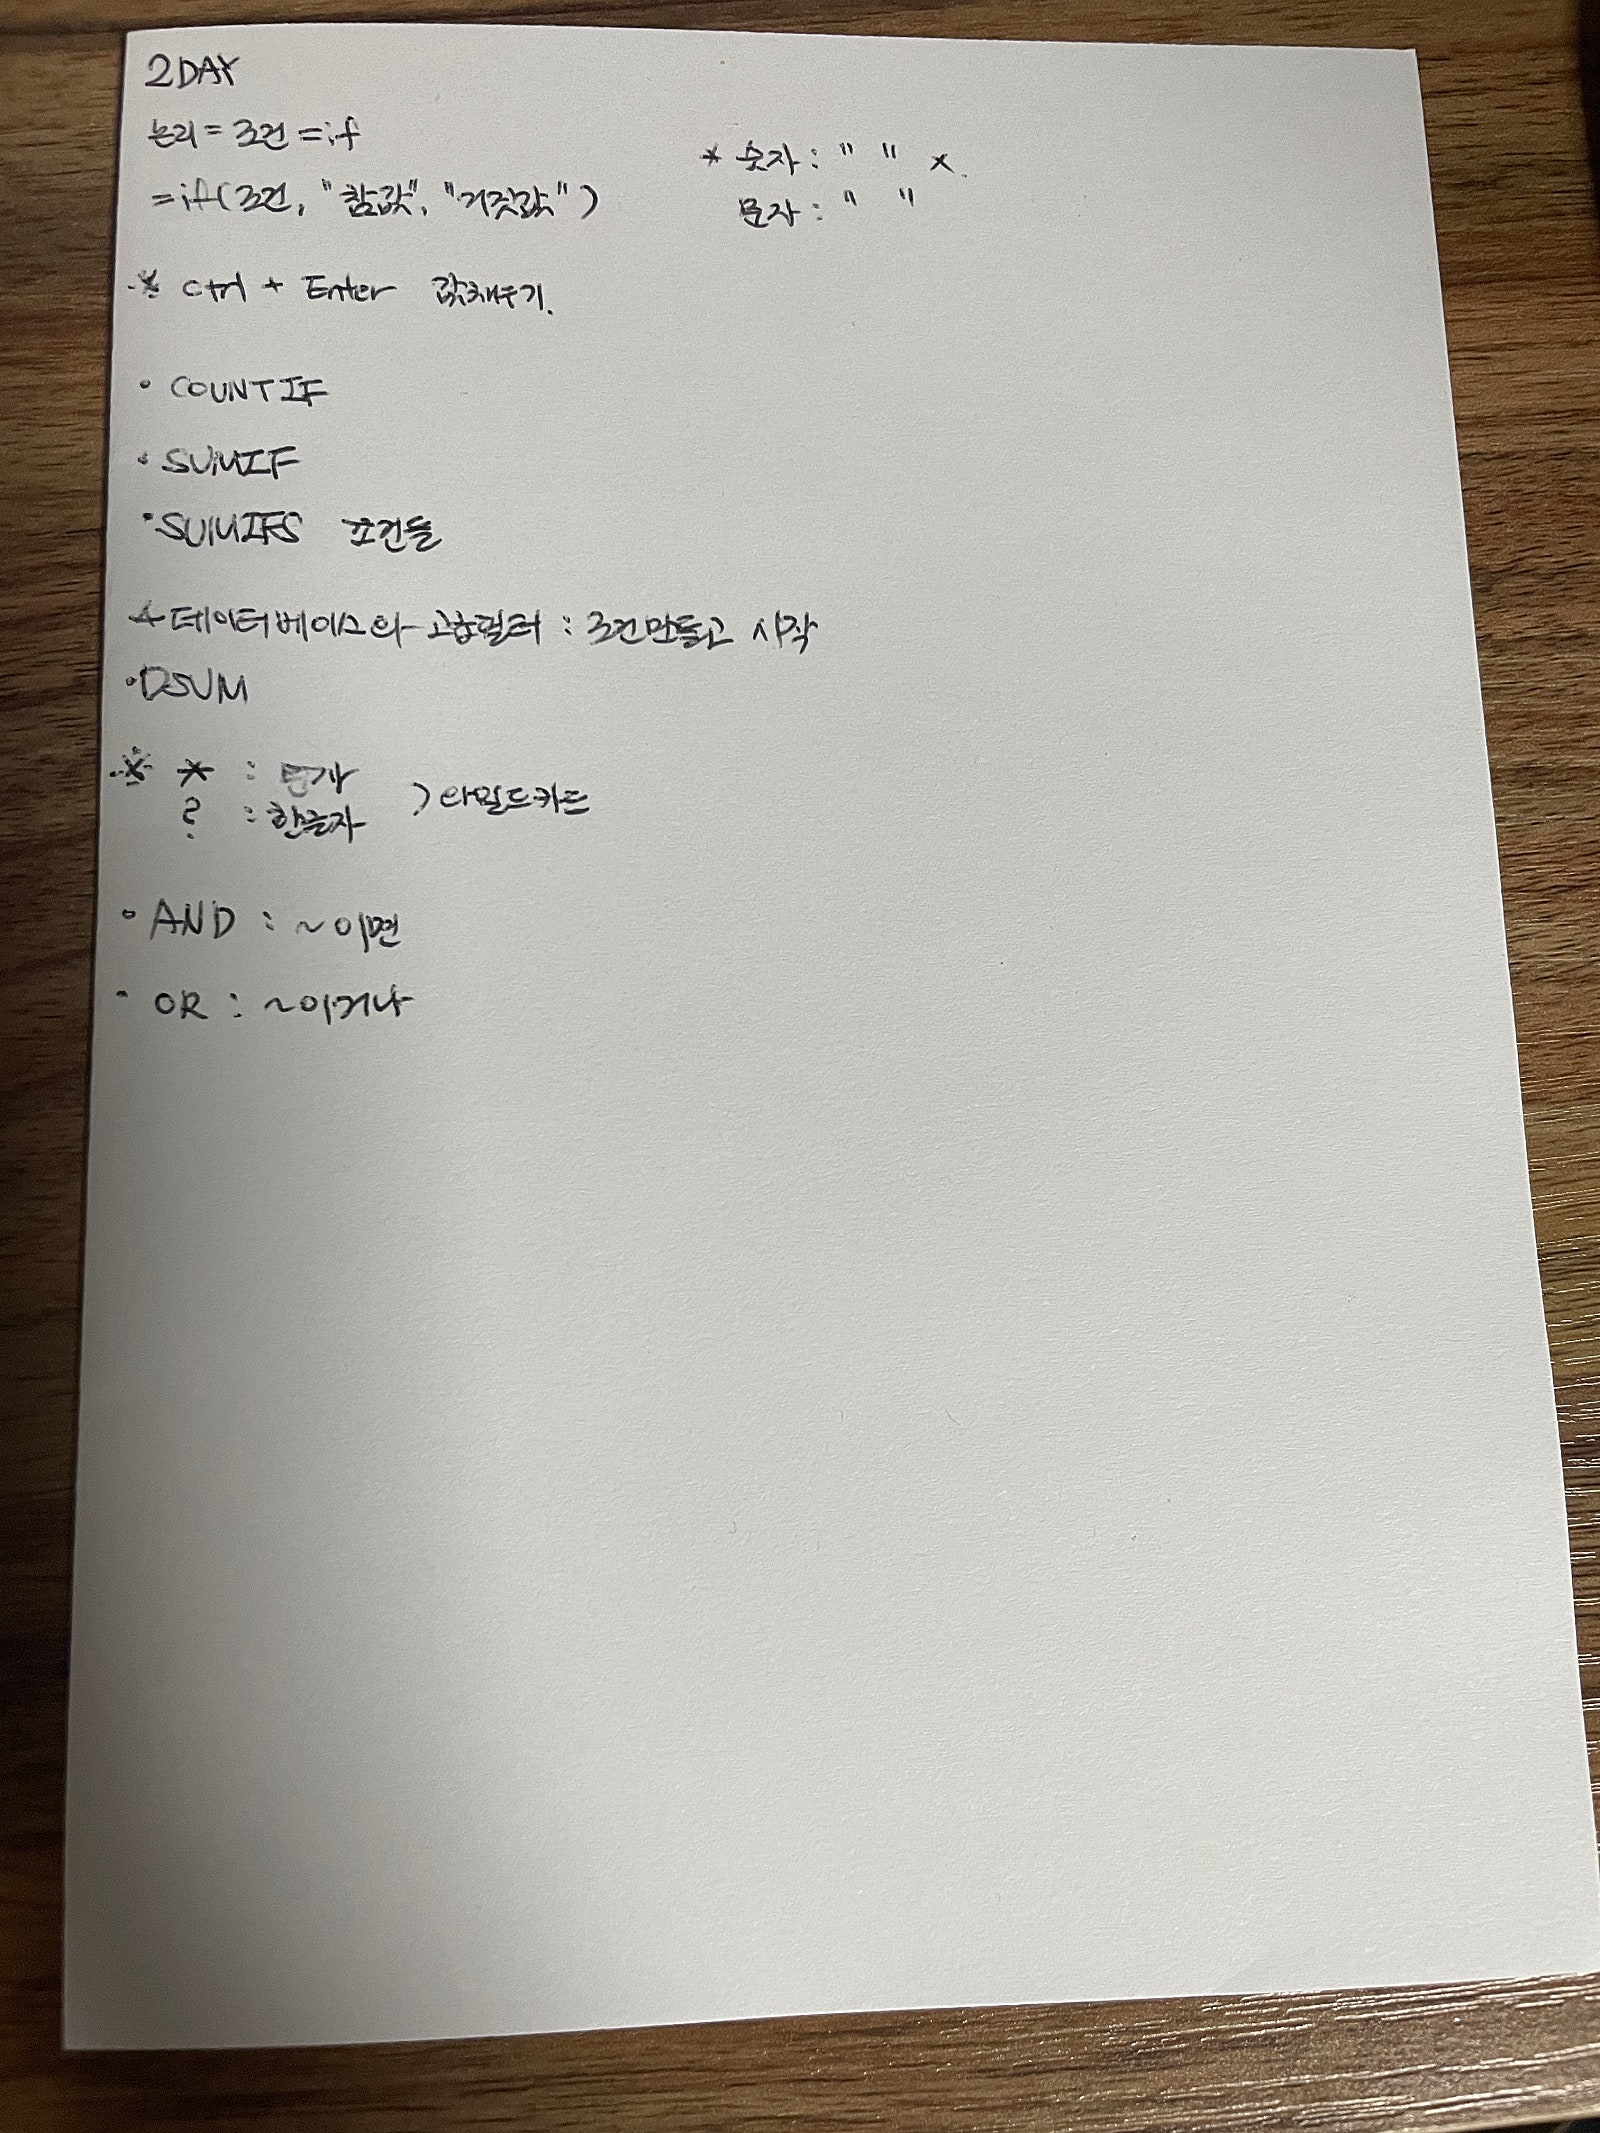 2DAY
논리 = 조건 = if
=if(조건, "참값", "거짓값")
* 숫자 : " " x.
문자 : " "
※ ctrl + Enter 값채우기.
• COUNTIF
• SUMIF
• SUMIFS 조건들
* 데이터베이스와 고급필터 : 조건만들고 시작
• DSUM
※ * : 문자
? : 한글자
) 와일드카드
• AND : ~이면
• OR : ~이거나